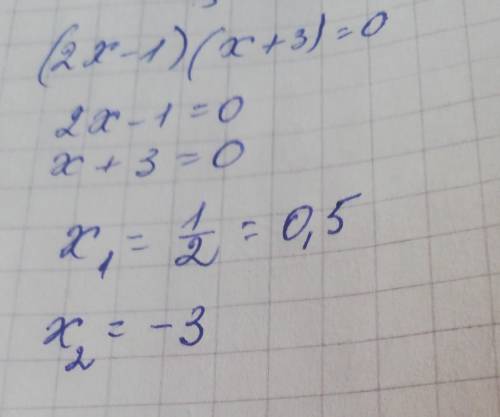 (2x-1)(x+3)=0
2x-1=0
x+3=0
x₁ = 1/2 = 0,5
x₂ = -3